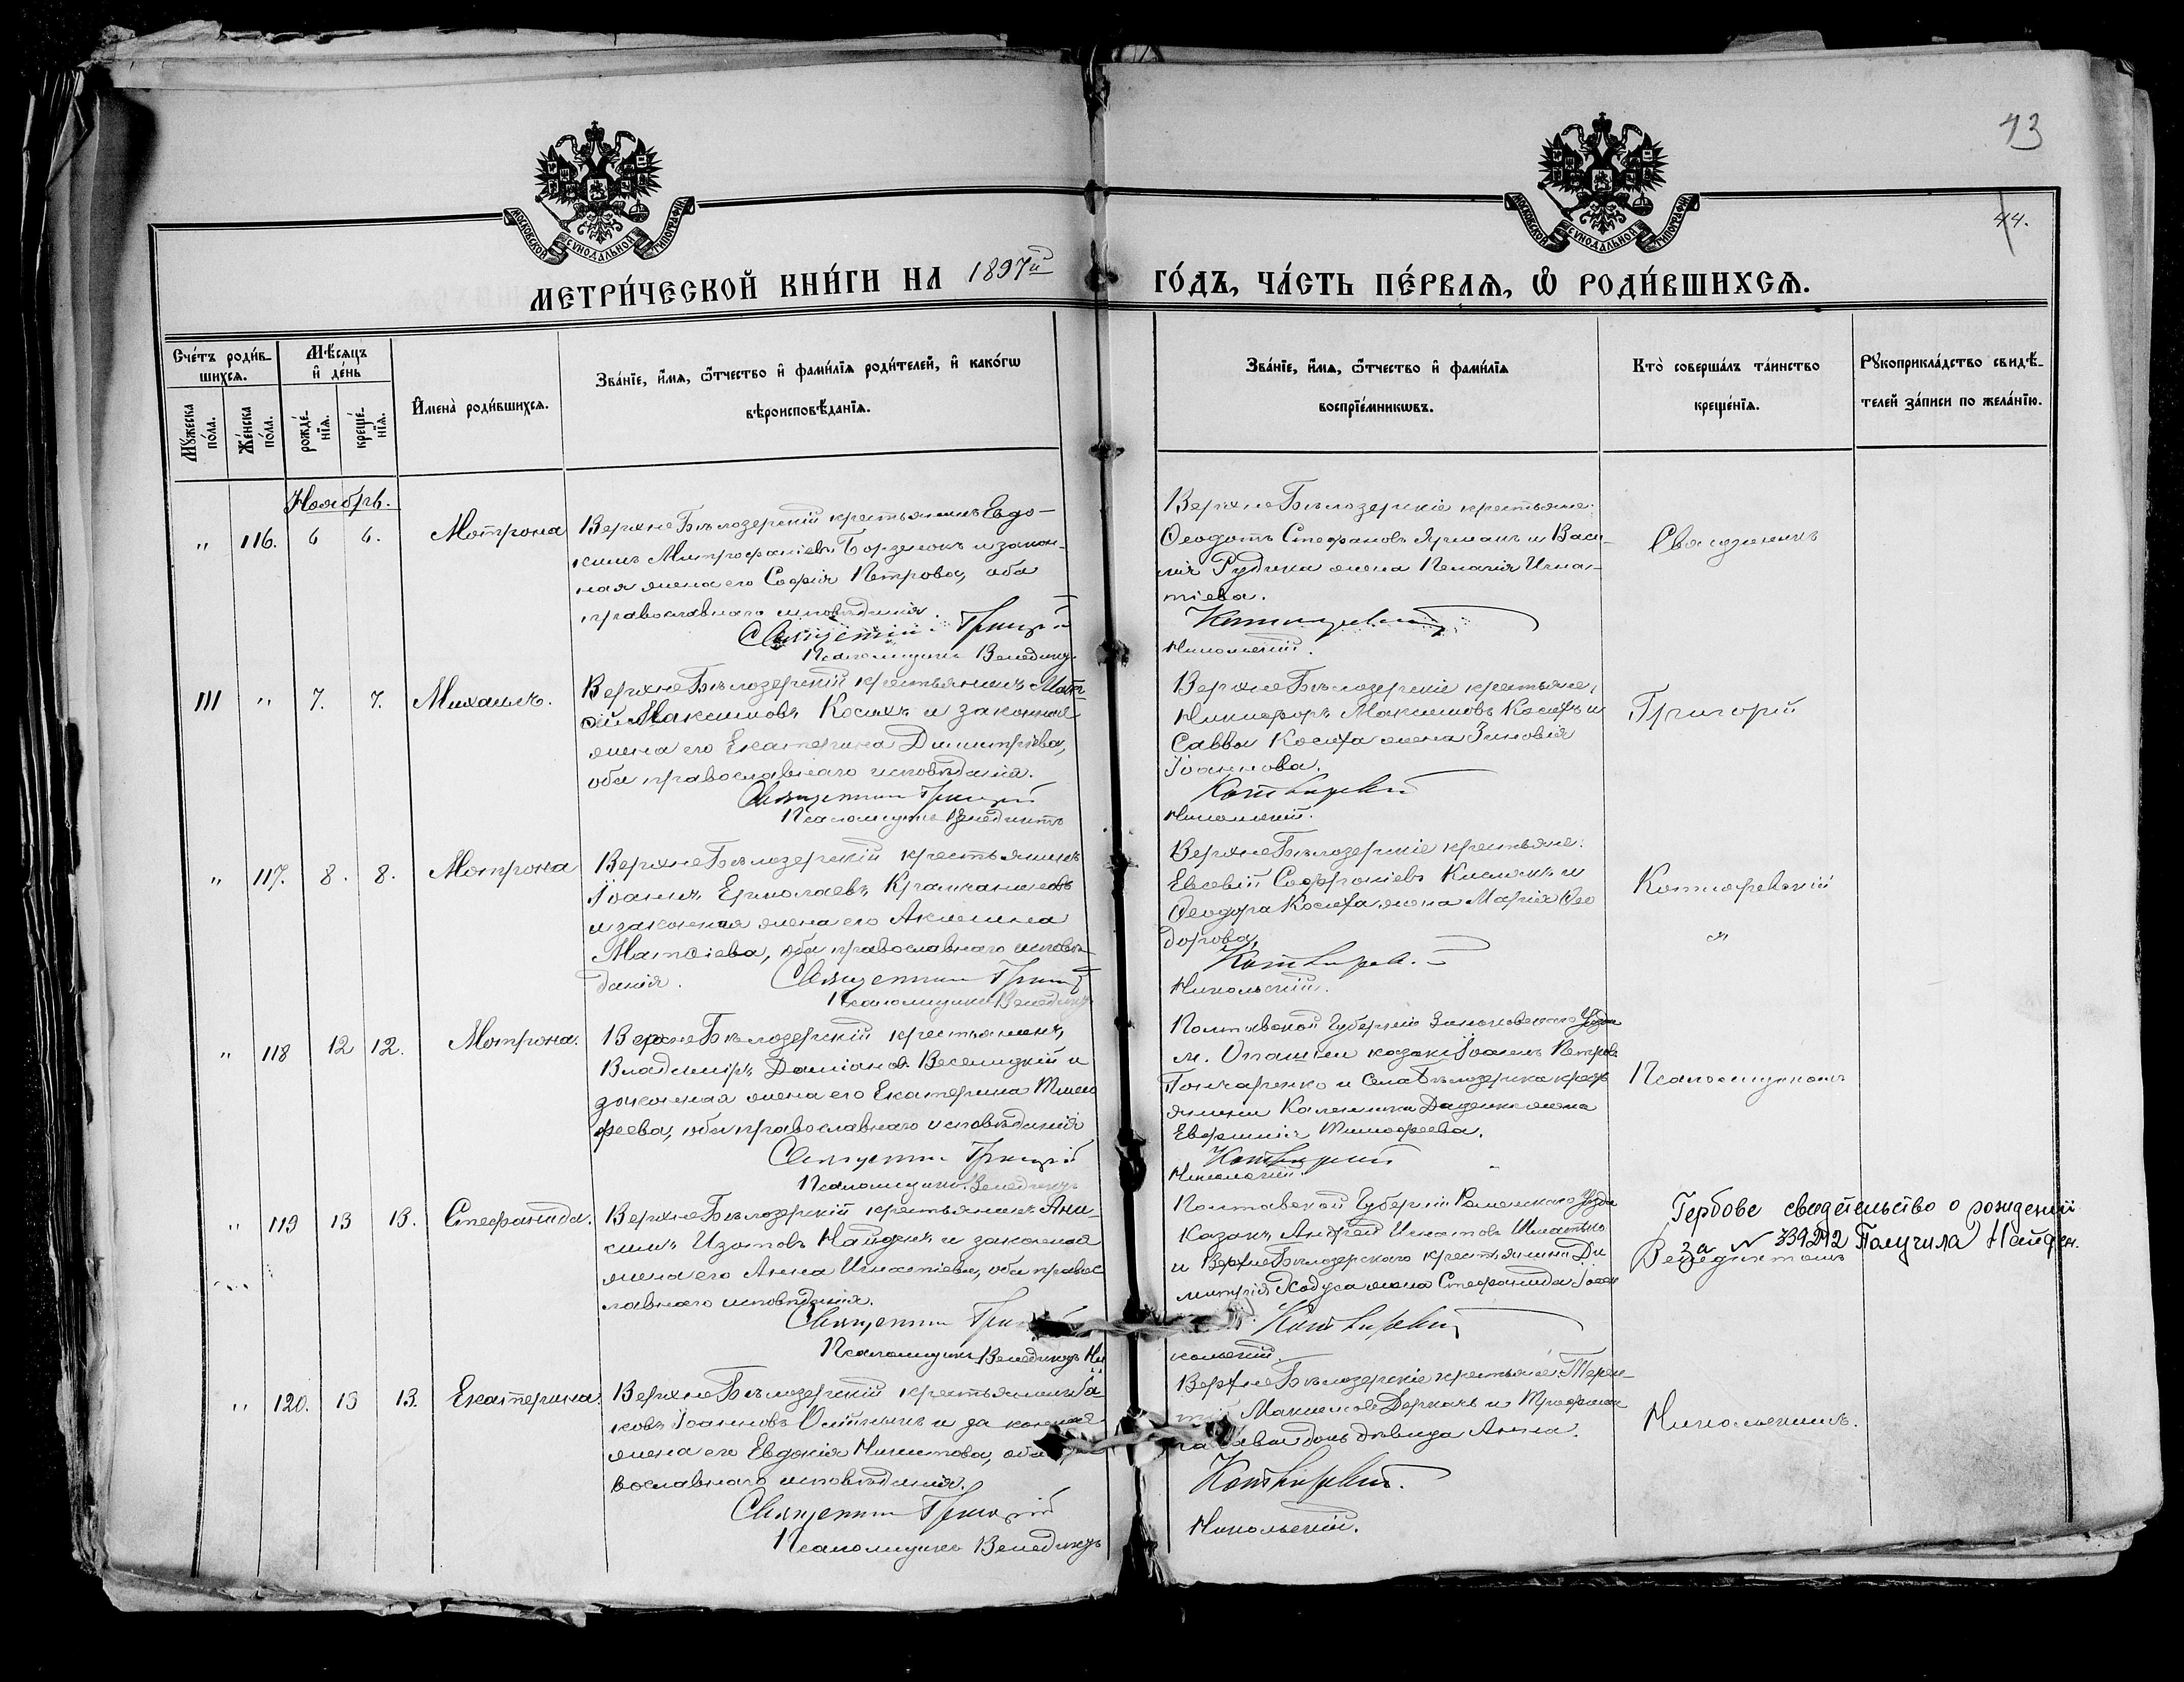 43
44.
МОСКОВСКОЙ СУНОДАЛЬНОЙ ТИПОГРАФІИ
МОСКОВСКОЙ СУНОДАЛЬНОЙ ТИПОГРАФІИ
МЕТРИ́ЧЕСКОЙ КНИ́ГИ НА 1897й ГО́ДЪ, ЧА́СТЬ ПЕ́РВАѦ, Ѡ РОДИ́ВШИХСѦ.
Сче́тъ роди́в-
шихсѧ.
Мꙋ́жеска по́ла.
Же́нска по́ла.
Мѣ́сѧцъ и҆ де́нь
рожде́нїѧ.
креще́нїѧ.
И҆мена̀ роди́вшихсѧ.
Зва́нїе, и҆́мѧ, ѻ҆́тчество и҆ фами́лїѧ роди́телей, и҆ како́гѡ
вѣроисповѣ́данїѧ.
Зва́нїе, и҆́мѧ, ѻ҆́тчество и҆ фами́лїѧ
воспрїе́мникѡвъ.
Кто̀ соверша́лъ та́инство
креще́нїѧ.
Рꙋкоприкла́дство свидѣ́-
телей за́писи по жела́нїю.
Ноябрь.
" 116. 6 6. Мотрона
Верхне Бѣлозерскій крестьянинъ Евдо-
кимъ Митрофаніевъ Борзенокъ и закон-
ная жена его Софія Петрова, оба
православнаго исповѣданія.
Священникъ Григорій
Псаломщикъ Венедиктъ
Верхне Бѣлозерскіе крестьяне:
Ѳеодотъ Стефановъ Ярманъ и Васи-
лія Рудика жена Пелагія Игна-
тіева.
Котляревскій
Никольскій.
Священникъ
111 " 7. 7. Михаилъ.
Верхне Бѣлозерскій крестьянинъ Мат-
ѳій Максимовъ Косяхъ и законная
жена его Екатерина Димитріева,
оба православнаго исповѣданія.
Священникъ Григорій
Псаломщикъ Венедиктъ
Верхне Бѣлозерскіе крестьяне,
Никифоръ Максимовъ Косяхъ и
Саввы Косяха жена Зиновія
Іоаннова.
Котляревскій
Никольскій.
Григорій
" 117. 8. 8. Мотрона
Верхне Бѣлозерскій крестьянинъ
Іоаннъ Ермолаевъ
и законная жена его Акилина
Матѳіева, оба православнаго исповѣ-
данія. Священникъ Григорій
Псаломщикъ Венедиктъ
Верхне Бѣлозерскіе крестьяне:
Евсевій Софроніевъ Кислякъ и
Ѳеодора Косяха жена Марія Ѳео
дорова.
Котляревскій
Никольскій.
Котляревскій
" 118 12 12. Мотрона.
Верхне Бѣлозерскій крестьянинъ,
Владиміръ Даміановъ Веселицкій и
законная жена его Екатерина Тимо
феева, оба православнаго исповѣданія
Священникъ Григорій
Псаломщикъ Венедиктъ
Полтавской Губерніи Зиньковскаго Уѣзда
м. Опашни козакъ Іоаннъ Петровъ
Гончаренко и села Бѣлозерка кресть
янина Калиника Даценка жена
Евфимія Тимофеева.
Котляревскій
Никольскій.
Псаломщикомъ
" 119 13 13. Стефанида.
Верхне Бѣлозерскій крестьянинъ Аки-
имъ Изотовъ Найденъ и законная
жена его Анна Игнатіева, оба правос
лавнаго исповѣданія.
Священникъ Григорій
Псаломщикъ Венедиктъ Ни
Полтавской Губерніи Роменскаго Уѣзда
Казакъ Андрей Игнатовъ Шматько
и Верхне Бѣлозерскаго крестьянина Ди
митрія Ходуса жена Стефанида Іоан
Котляревскій
кольскій.
Гербове свидетельство о рождении
за № 339292 Получила Найден.
Венедиктомъ
" 120. 13 13. Екатерина.
Верхне Бѣлозерскій крестьянинъ Іа-
ковъ Іоанновъ Олійникъ и законная
жена его Евдокія Никитова, оба пра
вославнаго исповѣданія.
Священникъ Григорій
Псаломщикъ Венедиктъ
Верхне Бѣлозерскіе крестьяне: Терен-
тій Максимовъ Деркачъ и
дочь дѣвица Анна.
Котляревскій.
Никольскій.
Никольскимъ.